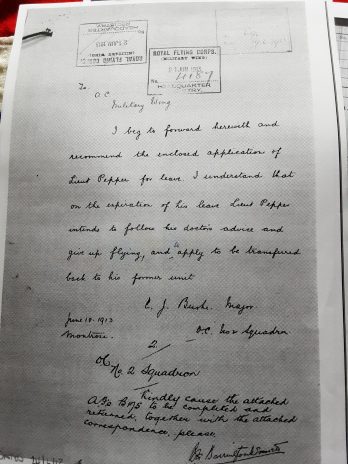 ROYAL FLYING CORPS.
(MILITARY WING)
No. 4189
HEADQUARTER
To
O.C.
Military Wing
I beg to forward herewith and
recommend the enclosed application of
Lieut Pepper for leave. I understand that
on the expiration of his leave Lieut Pepper
intends to follow his doctors advice and
give up flying, and to apply to be transferred
back to his former unit
C. J. Burke. Major
June 18. 1913
O.C. No 2 Squadron
Montrose.
2
OC
No. 2 Squadron
Kindly cause the attached
to be completed and
returned, together with the attached
correspondence, please.